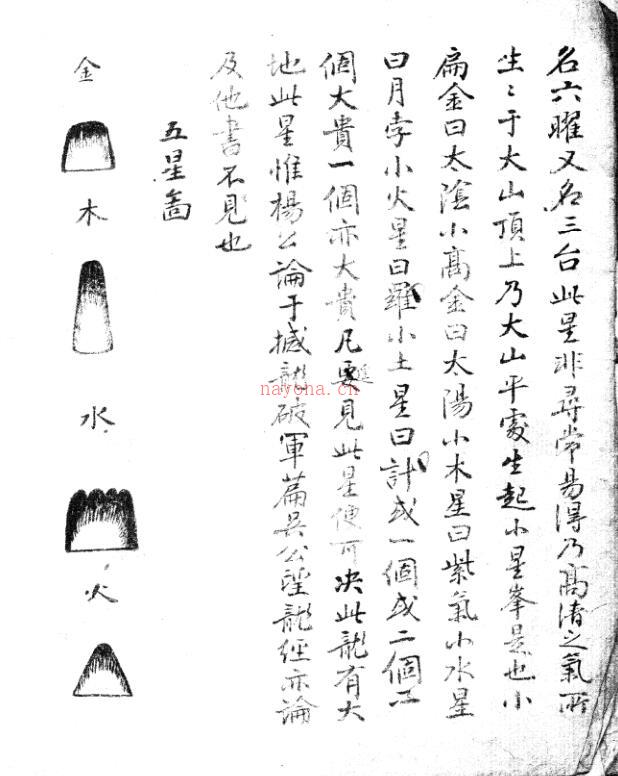 名六曜又名三台此星非尋常易得乃高清之氣所
生〻于大山頂上乃大山平處生起小星峯是也小
扁金曰太陰小高金曰太陽小木星曰紫氣小水星
曰月孛小火星曰羅小土星曰計或一個或二個
個大貴一個亦大貴凡要見此星便可决此龍有大
地此星惟楊公論于撼龍破軍篇吳公望龍經亦論
及他書不見也
五星啚
金
木
水
火
nayona.cn